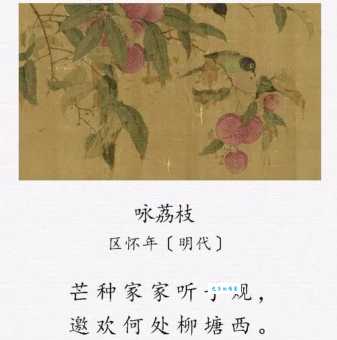 咏荔枝
区怀年〔明代〕
芒种家家听子规，
邀欢何处柳塘西。